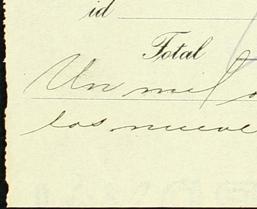 id
Total
Un mil
los nueve